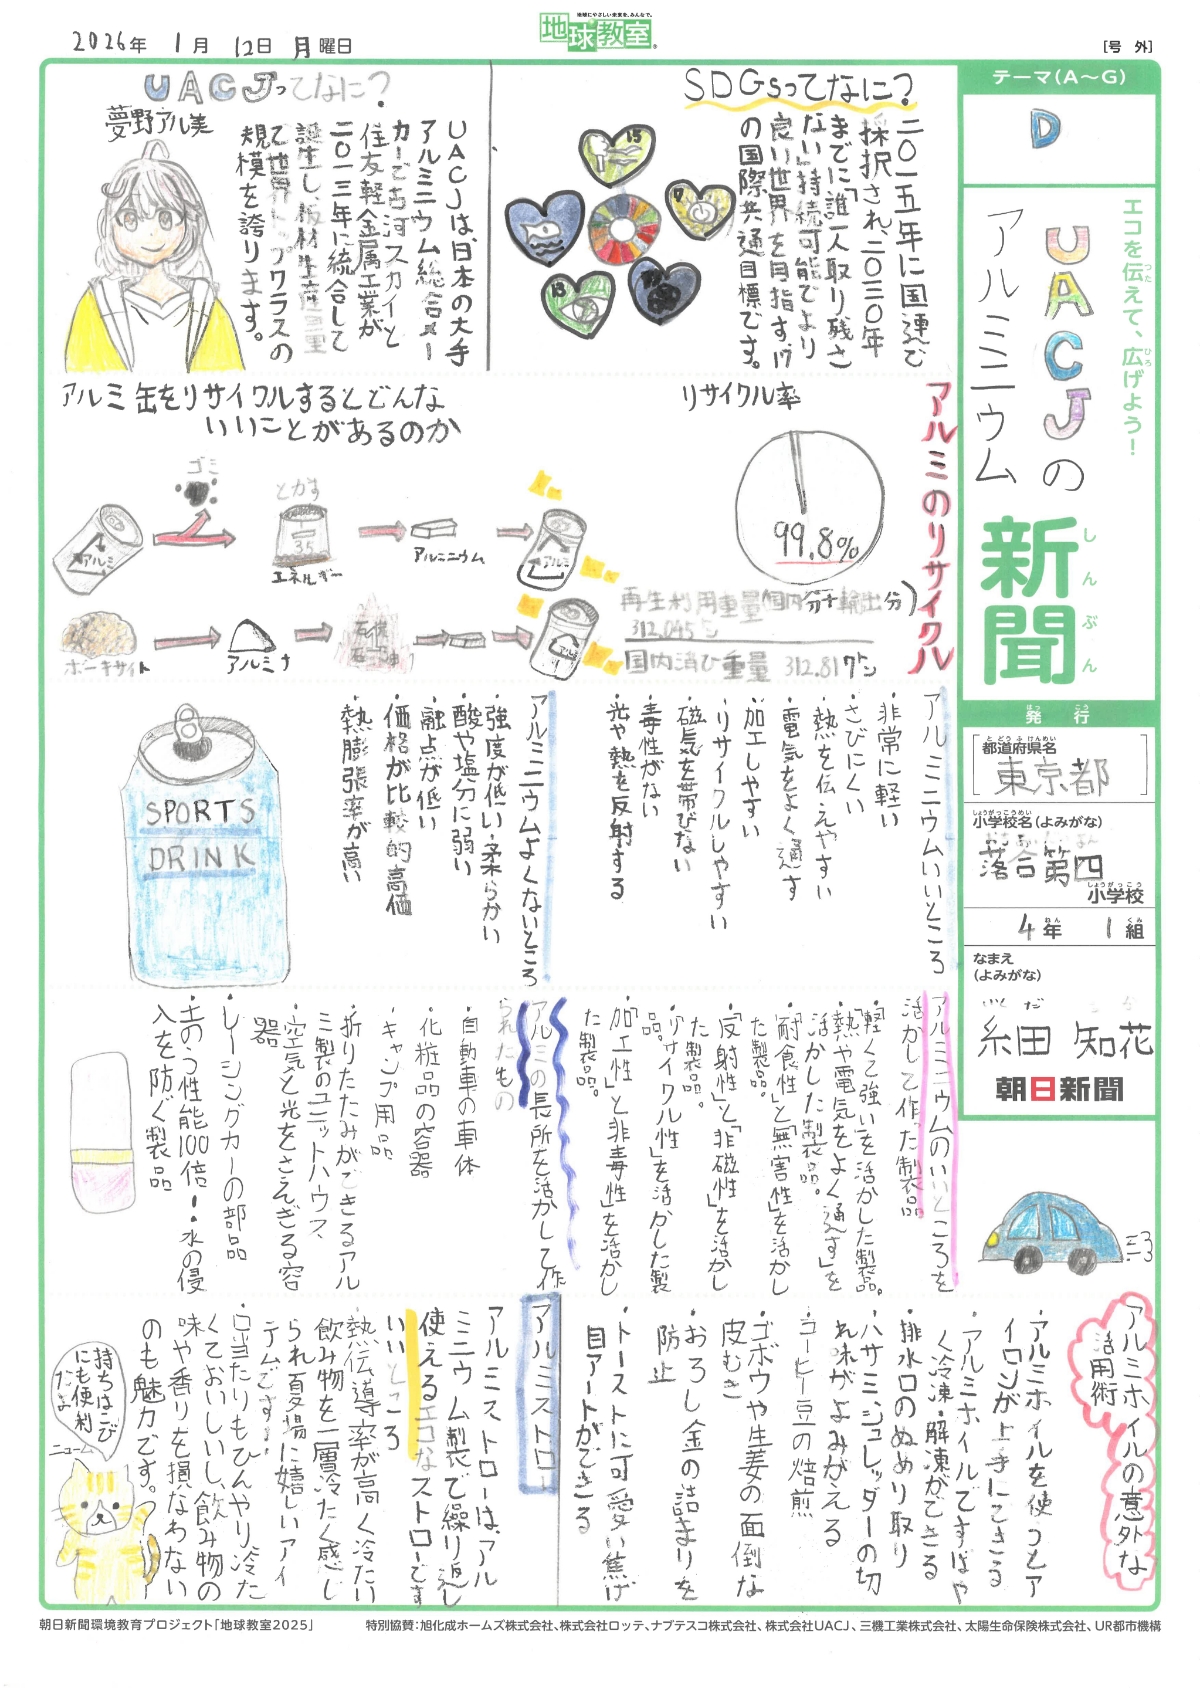 2026年 1月 12日 月曜日
地球にやさしい未来を、みんなで。
地球教室
[号 外]
テーマ(A〜G)
D
エコを伝えて、広げよう!
つた
ひろ
UACJの
アルミニウム
新聞
しんぶん
発行
はっこう
都道府県名
とどうふけんめい
東京都
小学校名(よみがな)
しょうがっこうめい
落合第四
小学校
しょうがっこう
4年 1組
ねん くみ
なまえ
(よみがな)
糸田 知花
朝日新聞
SDGsってなに?
二〇一五年に国連で
採択され、二〇三〇年
までに「誰一人取り残さ
ない」持続可能でより
良い世界を目指す、17
の国際共通目標です。
UACJってなに?
夢野アル美
UACJは、日本の大手
アルミニウム総合メー
カーで古河スカイと
住友軽金属工業が
二〇一三年に統合して
誕生し、板材生産量
で世界トップクラスの
規模を誇ります。
アルミのリサイクル
リサイクル率
99.8%
再生利用重量(国内分+輸出分)
312,045t
国内消ひ重量 312.817トン
アルミ缶をリサイクルするとどんな
いいことがあるのか
ゴミ
アルミ
とかす
35
エネルギー
アルミニウム
アルミ
ボーキサイト
アルミナ
アルミニウムいいところ
・非常に軽い
・さびにくい
・熱を伝えやすい
・電気をよく通す
・加工しやすい
・リサイクルしやすい
・磁気を帯びない
・毒性がない
・光や熱を反射する
アルミニウムよくないところ
・強度が低い・柔らかい
・酸や塩分に弱い
・融点が低い
・価格が比較的高価
・熱膨張率が高い
SPORTS
DRINK
アルミニウムのいいところを
活かして作った製品
・「軽くて強い」を活かした製品。
・「熱や電気をよく通す」を
活かした製品。
・「耐食性」と「無害性」を活かし
た製品。
・「反射性」と「非磁性」を活かし
た製品。
・「リサイクル性」を活かした製
品。
・「加工性」と非毒性」を活かし
た製品。
アルミの長所を活かして作
られたもの
・自動車の車体
・化粧品の容器
・キャンプ用品
・折りたたみができるアル
ミ製のユニットハウス
・空気と光をさえぎる容
器
・レーシングカーの部品
・土のう性能100倍!水の侵
入を防ぐ製品
アルミホイルの意外な
活用術
・アルミホイルを使うとア
イロンが上手にできる
・アルミホイルですばや
く冷凍・解凍ができる
・排水口のぬめり取り
・ハサミ、シュレッダーの切
れ味がよみがえる
・コーヒー豆の焙煎
・ゴボウや生姜の面倒な
皮むき
・おろし金の詰まりを
防止
・トーストに可愛い焦げ
目アートができる
アルミストロー
アルミストローは、アル
ミニウム製で繰り返し
使えるエコなストローです
いいところ
熱伝導率が高く冷たい
飲み物を一層冷たく感じ
られ夏場に嬉しいアイ
テムです!
口当たりもひんやり冷た
くておいしいし、飲み物の
味や香りを損なわない
のも魅力です。
持ちはこび
にも便利
だよ
ニューム
朝日新聞環境教育プロジェクト「地球教室2025」
特別協賛:旭化成ホームズ株式会社、株式会社ロッテ、ナブテスコ株式会社、株式会社UACJ、三機工業株式会社、太陽生命保険株式会社、UR都市機構